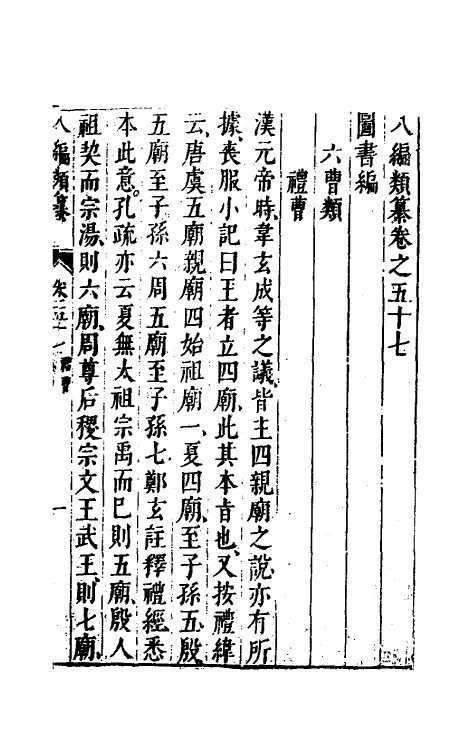 八編類纂卷之五十七
圖書編
六曹類
禮曹
漢元帝時、韋玄成等之議、皆主四親廟之說、亦有所
據、喪服小記曰、王者立四廟、此其本旨也、又按禮緯
云、唐虞五廟、親廟四、始祖廟一、夏四廟、至子孫五、殷
五廟、至子孫六、周五廟、至子孫七、鄭玄註釋禮經、悉
本此意。孔疏亦云、夏無太祖、宗禹而已、則五廟、殷人
祖契而宗湯、則六廟、周尊后稷、宗文王武王、則七廟、
八編類纂
卷之五十七
禮曹
一